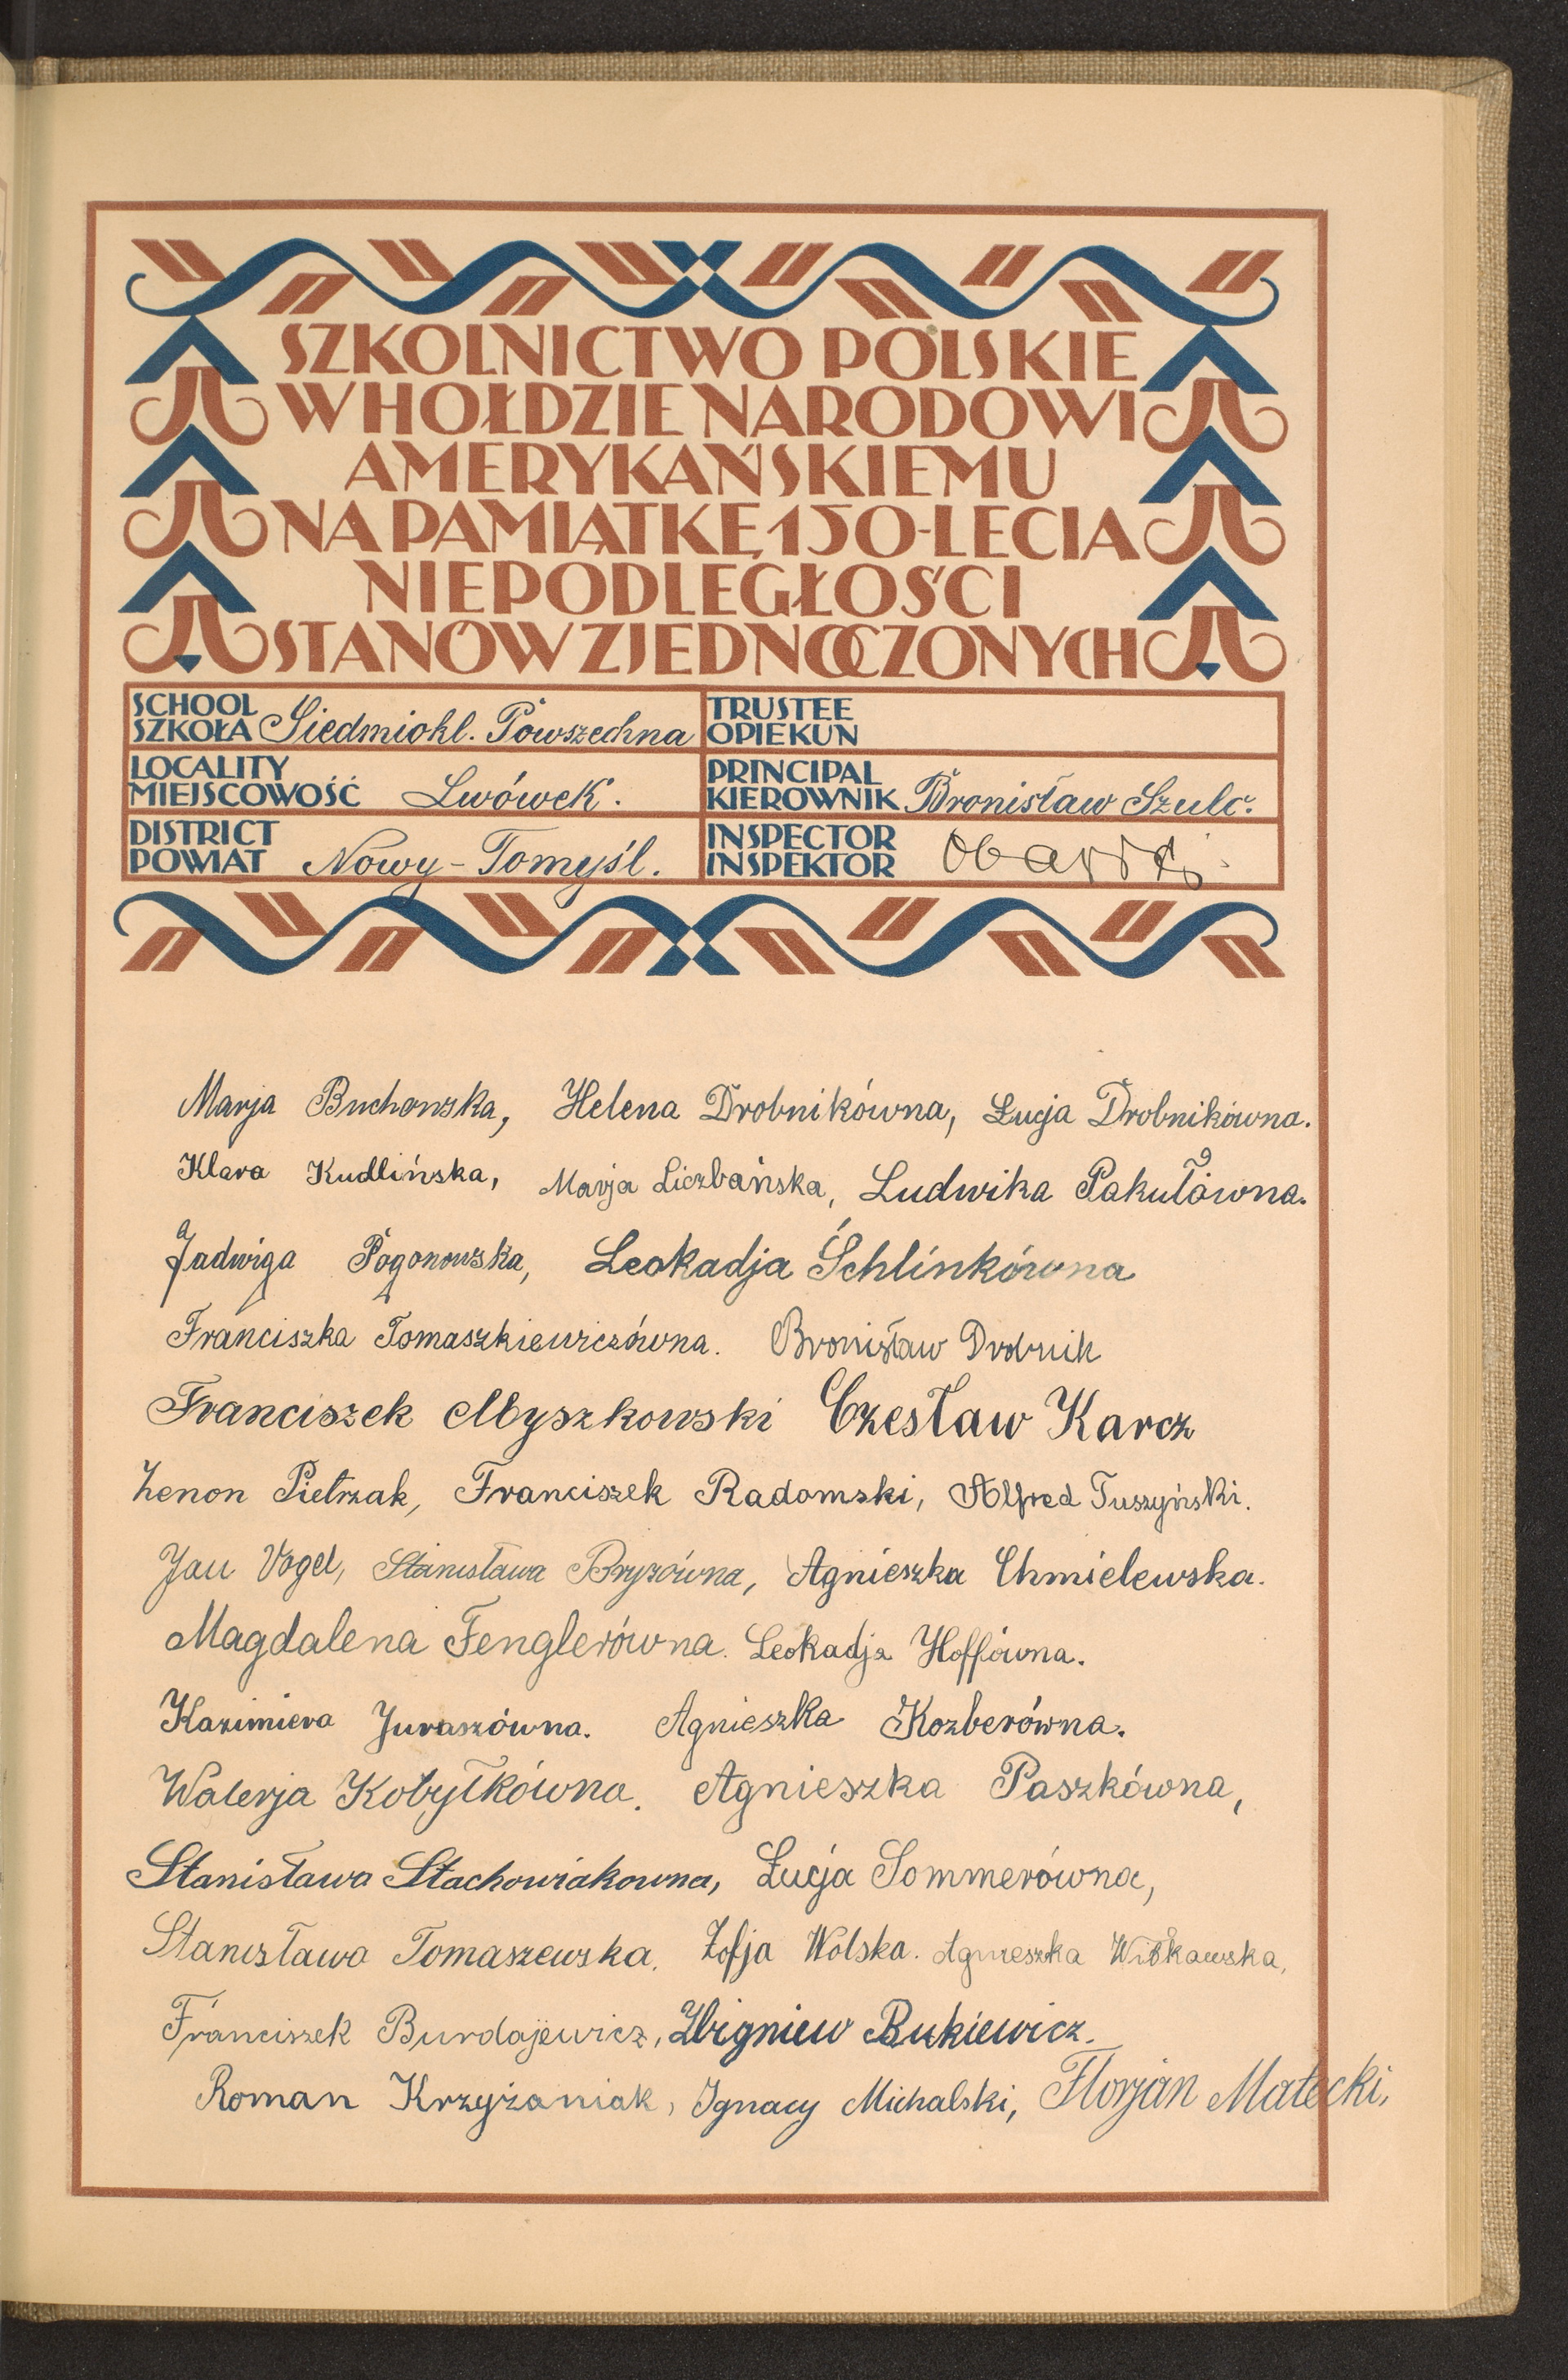 SZKOLNICTWO POLSKIE
W HOŁDZIE NARODOWI
AMERYKAŃSKIEMU
NA PAMIĄTKĘ 150-LECIA
NIEPODLEGŁOŚCI
STANÓW ZJEDNOCZONYCH
SCHOOL
SZKOŁA Siedmiokl. Powszechna
TRUSTEE
OPIEKUN
LOCALITY
MIEJSCOWOŚĆ Lwówek.
PRINCIPAL
KIEROWNIK Bronisław Szulc.
DISTRICT
POWIAT Nowy-Tomyśl.
INSPECTOR
INSPEKTOR
Marja Buchowska, Helena Drobnikówna, Łucja Drobnikówna.
Klara Kudlińska, Marja Liczbańska, Ludwika Pakułówna.
Jadwiga Pogonowska, Leokadja Schlinkówna
Franciszka Tomaszkiewiczówna. Bronisław Drobnik
Franciszek Myszkowski Czesław Karcz
Zenon Pietrzak, Franciszek Radomski, Alfred Tuszyński.
Jan Vogel, Stanisława Bryzówna, Agnieszka Chmielewska.
Magdalena Fenglerówna. Leokadja Hoffówna.
Kazimiera Juraszówna. Agnieszka Kozberówna.
Walerja Kobyłkówna. Agnieszka Paszkówna,
Stanisława Stachowiakowna, Łucja Sommerówna,
Stanisława Tomaszewska. Zofja Wolska. Agnieszka Witkowska,
Franciszek Burdajewicz, Zbigniew Bukiewicz.
Roman Krzyżaniak, Ignacy Michalski, Florjan Małecki,